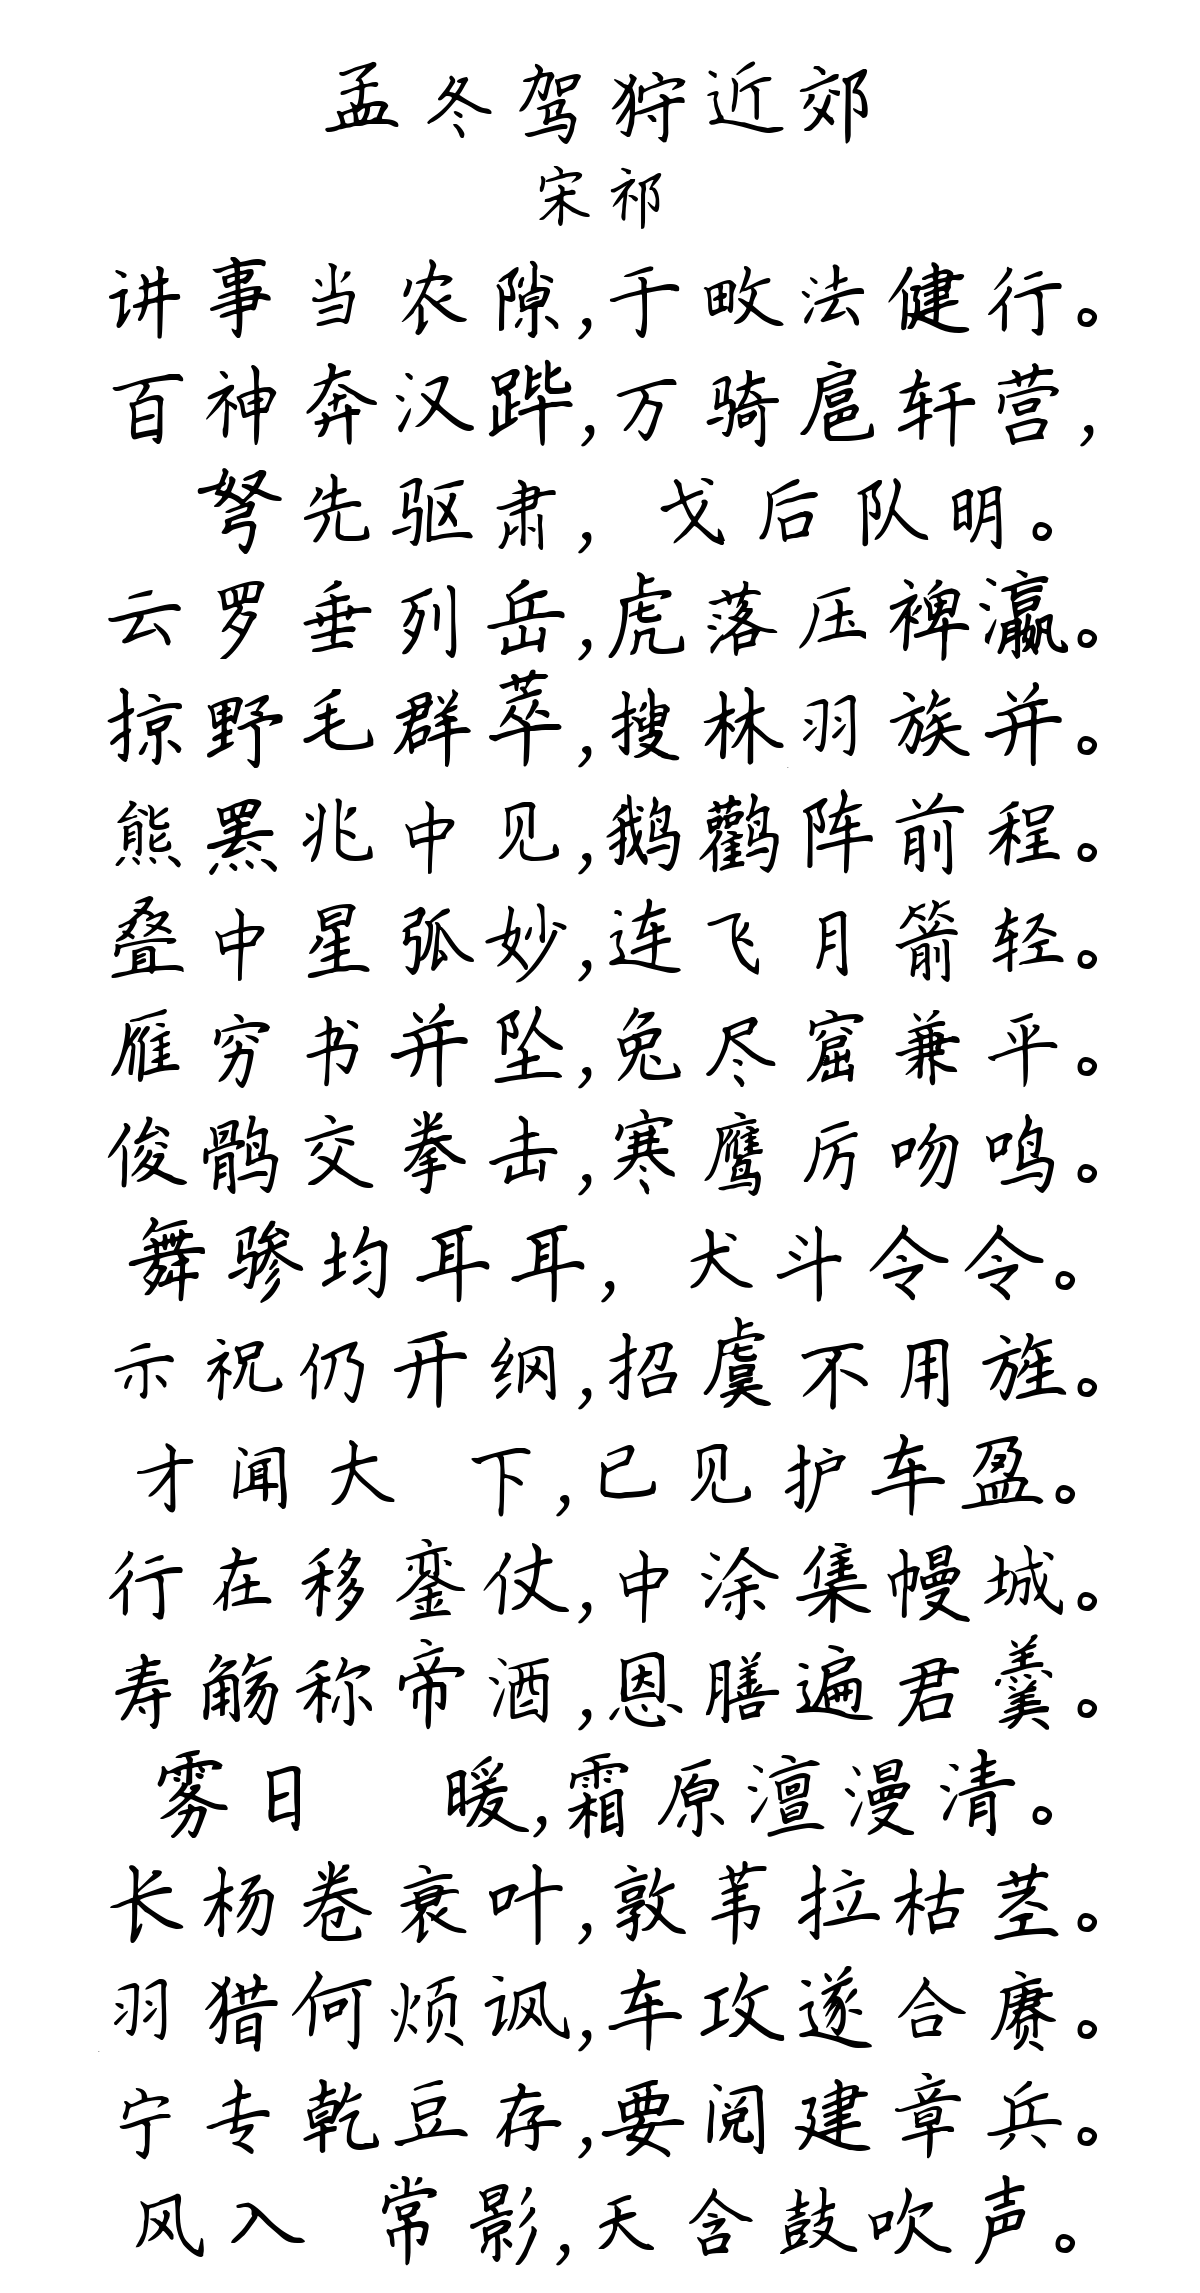 孟冬驾狩近郊
宋祁
讲事当农隙,于畋法健行。
百神奔汉跸,万骑扈轩营,
弩先驱肃,戈后队明。
云罗垂列岳,虎落压裨瀛。
掠野毛群萃,搜林羽族并。
熊罴兆中见,鹅鹳阵前程。
叠中星弧妙,连飞月箭轻。
雁穷书并坠,兔尽窟兼平。
俊鹘交拳击,寒鹰厉吻鸣。
舞骖均耳耳,犬斗令令。
示祝仍开纲,招虞不用旌。
才闻大 下,已见护车盈。
行在移銮仗,中涂集幔城。
寿觞称帝酒,恩膳遍君羹。
雾日 暖,霜原澶漫清。
长杨卷衰叶,敦苇拉枯茎。
羽猎何烦讽,车攻遂合赓。
宁专乾豆存,要阅建章兵。
风入 常影,天含鼓吹声。